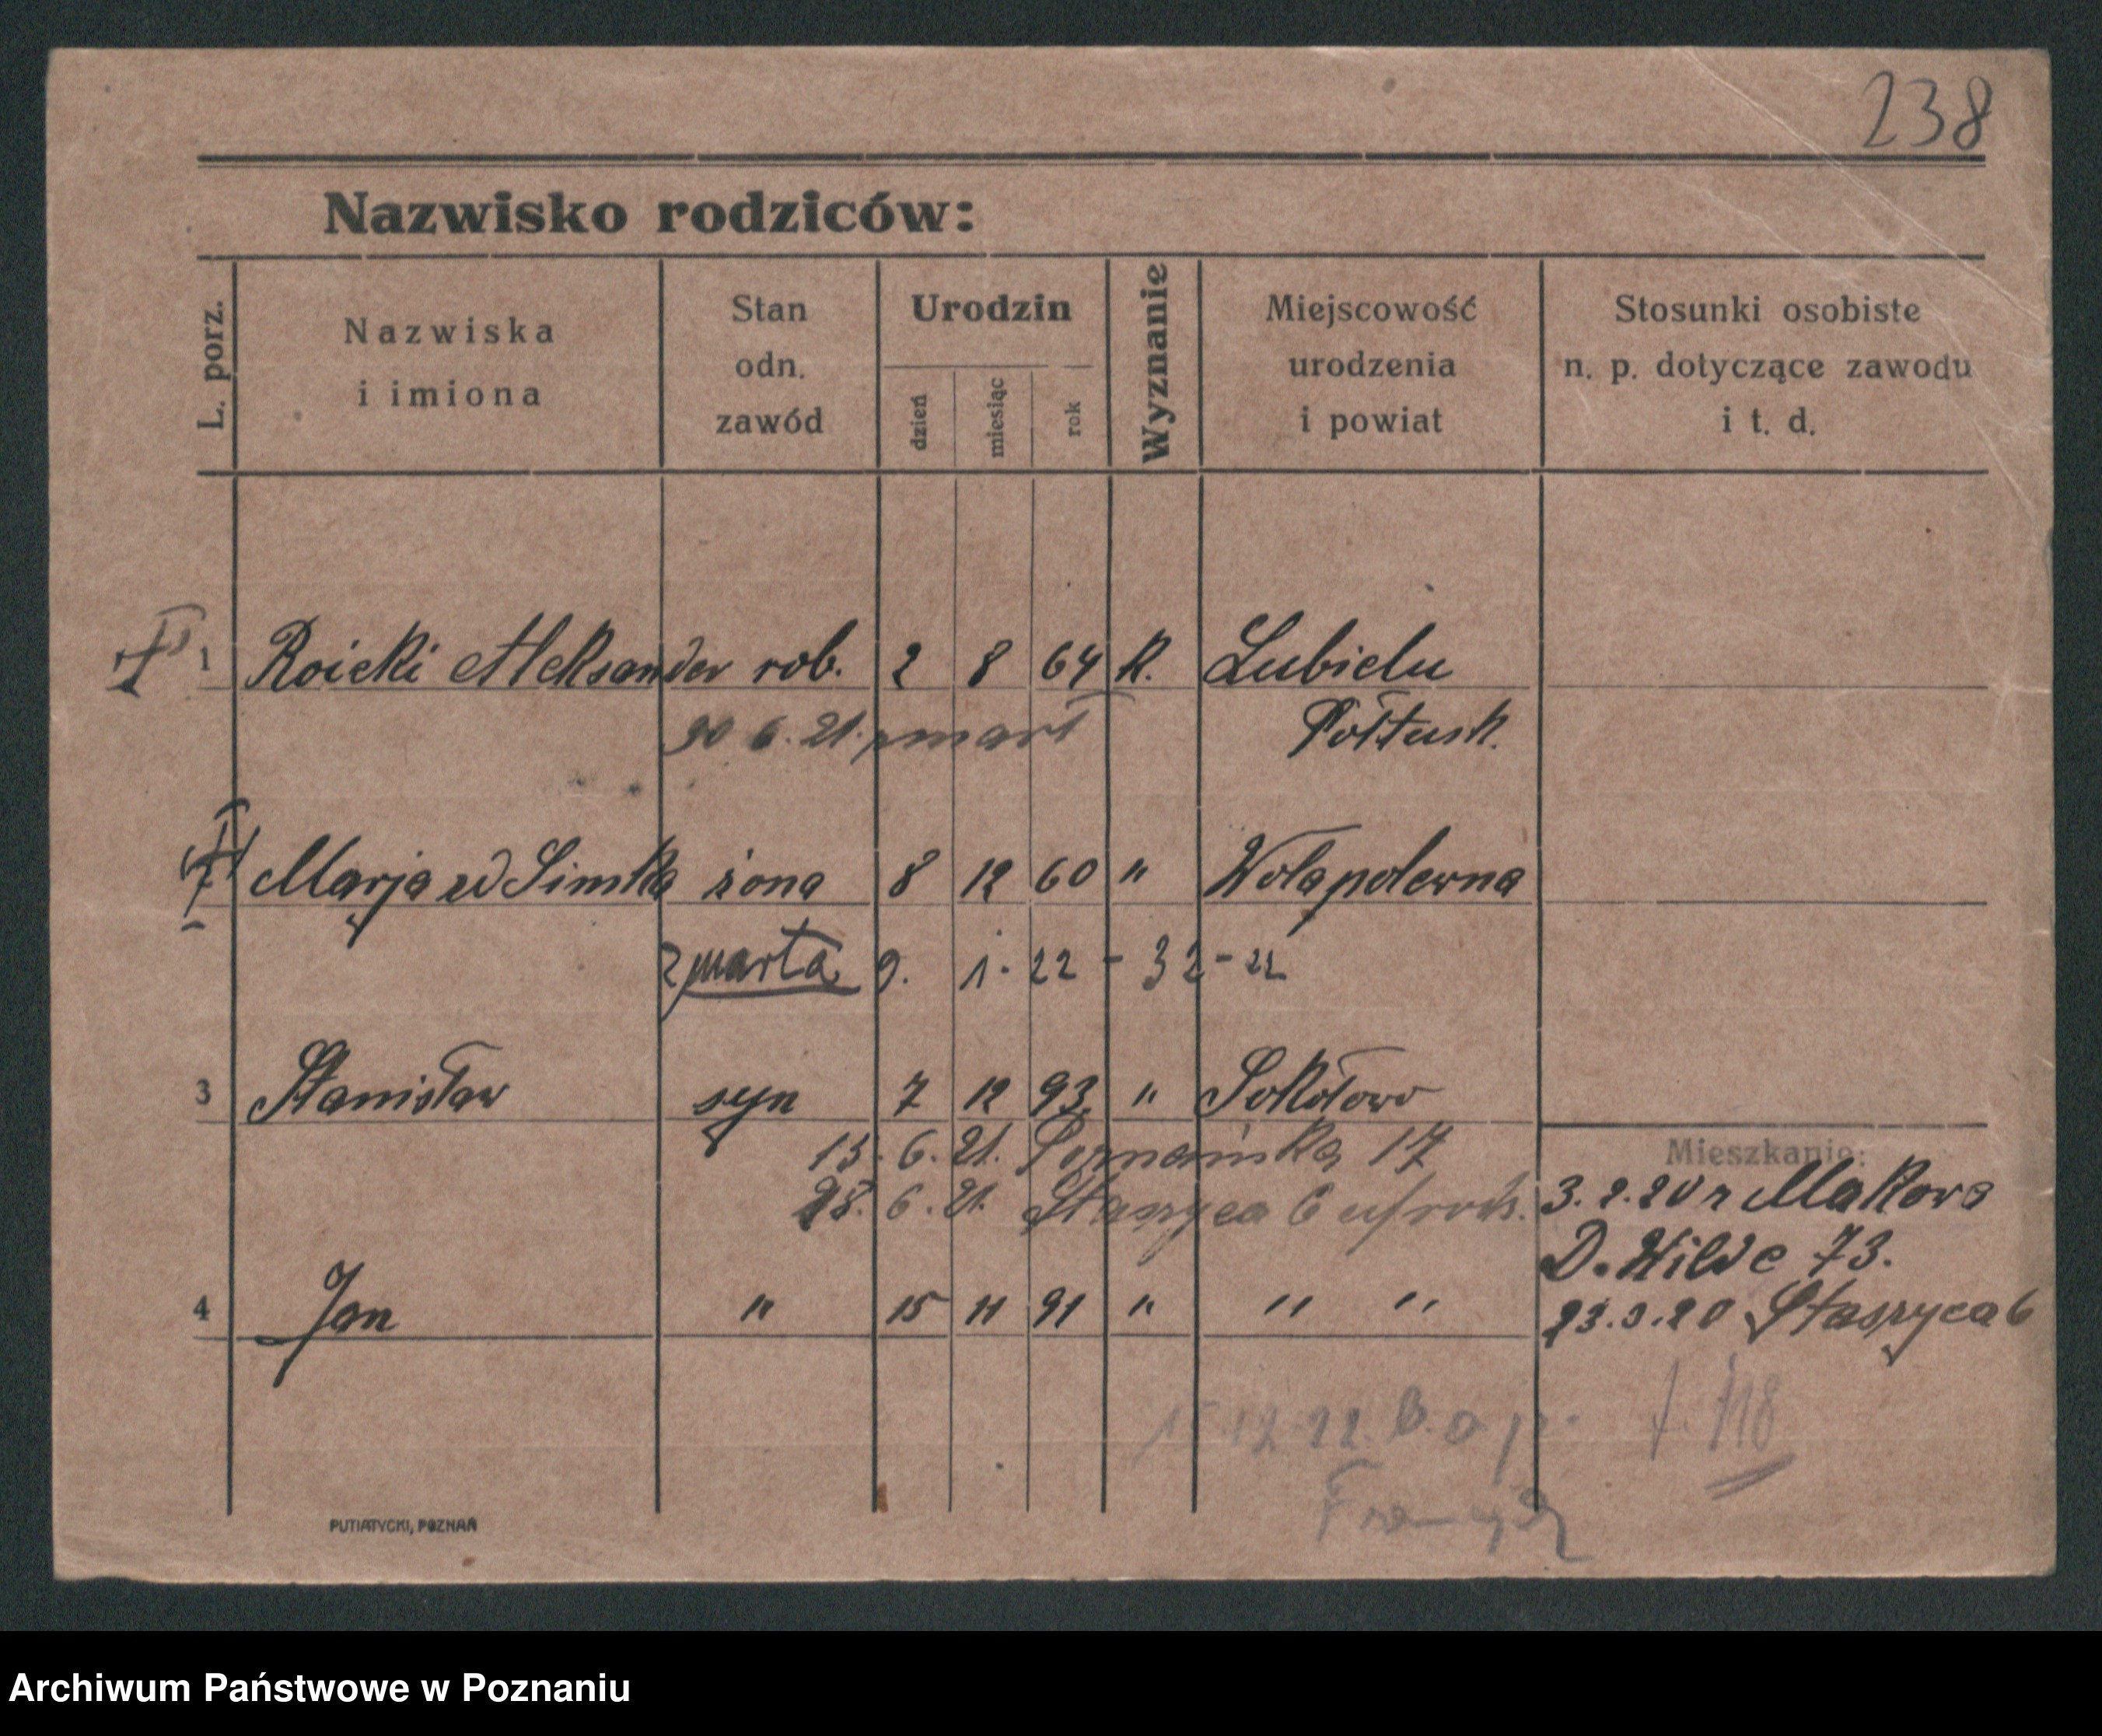 238
Nazwisko rodziców:
L. porz.
Nazwiska
i imiona
Stan
odn.
zawód
Urodzin
dzień
miesiąc
rok
Wyznanie
Miejscowość
urodzenia
i powiat
Stosunki osobiste
n. p. dotyczące zawodu
i t. d.
1 Roicki Aleksander rob. 2 8 64 k. Lubielu
6. 21. zmarł Półtusk.
Marja żona 8 12 60 " Wola polewna
zmarta 9. 1. 22 - 32-22
3 Stanisław syn 7 12 93 " Sokołowo
Mieszkanie:
15. 6. 21. Poznańska 17
28. 6. 21. Staszyca 6
3. 2. 20 z Makowa
D. Wilde 73.
4 Jan " 15 11 91 " " "
23. 3. 20 Staszyca 6
12.22.
118
PUTIATYCKI, POZNAŃ
Archiwum Państwowe w Poznaniu